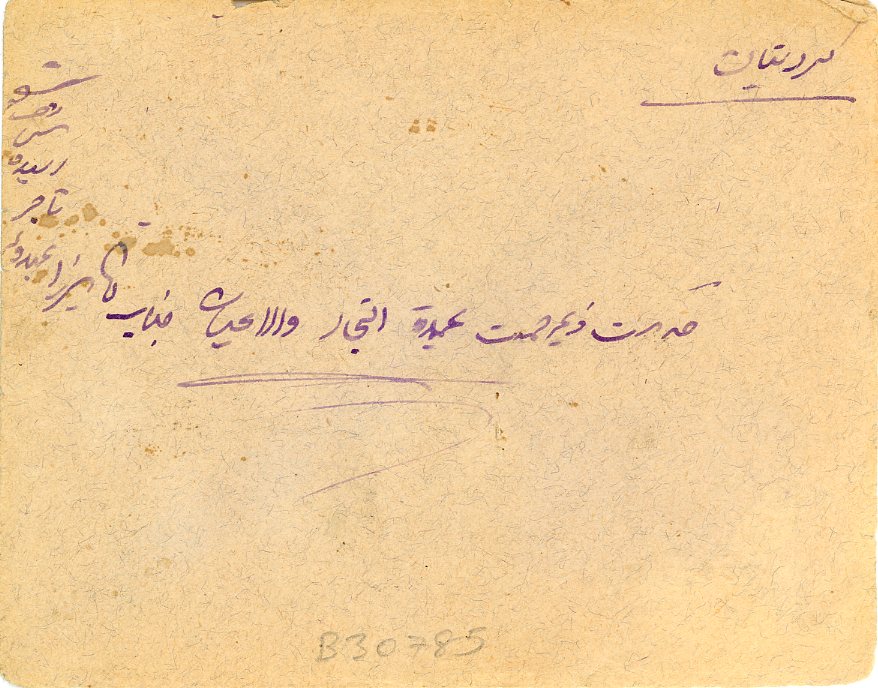 کردستان
خدمت ذیمرحمت عمدة التجار والاعیان جناب
آقا میرزا عبدو
تاجر
رسیده
B30785